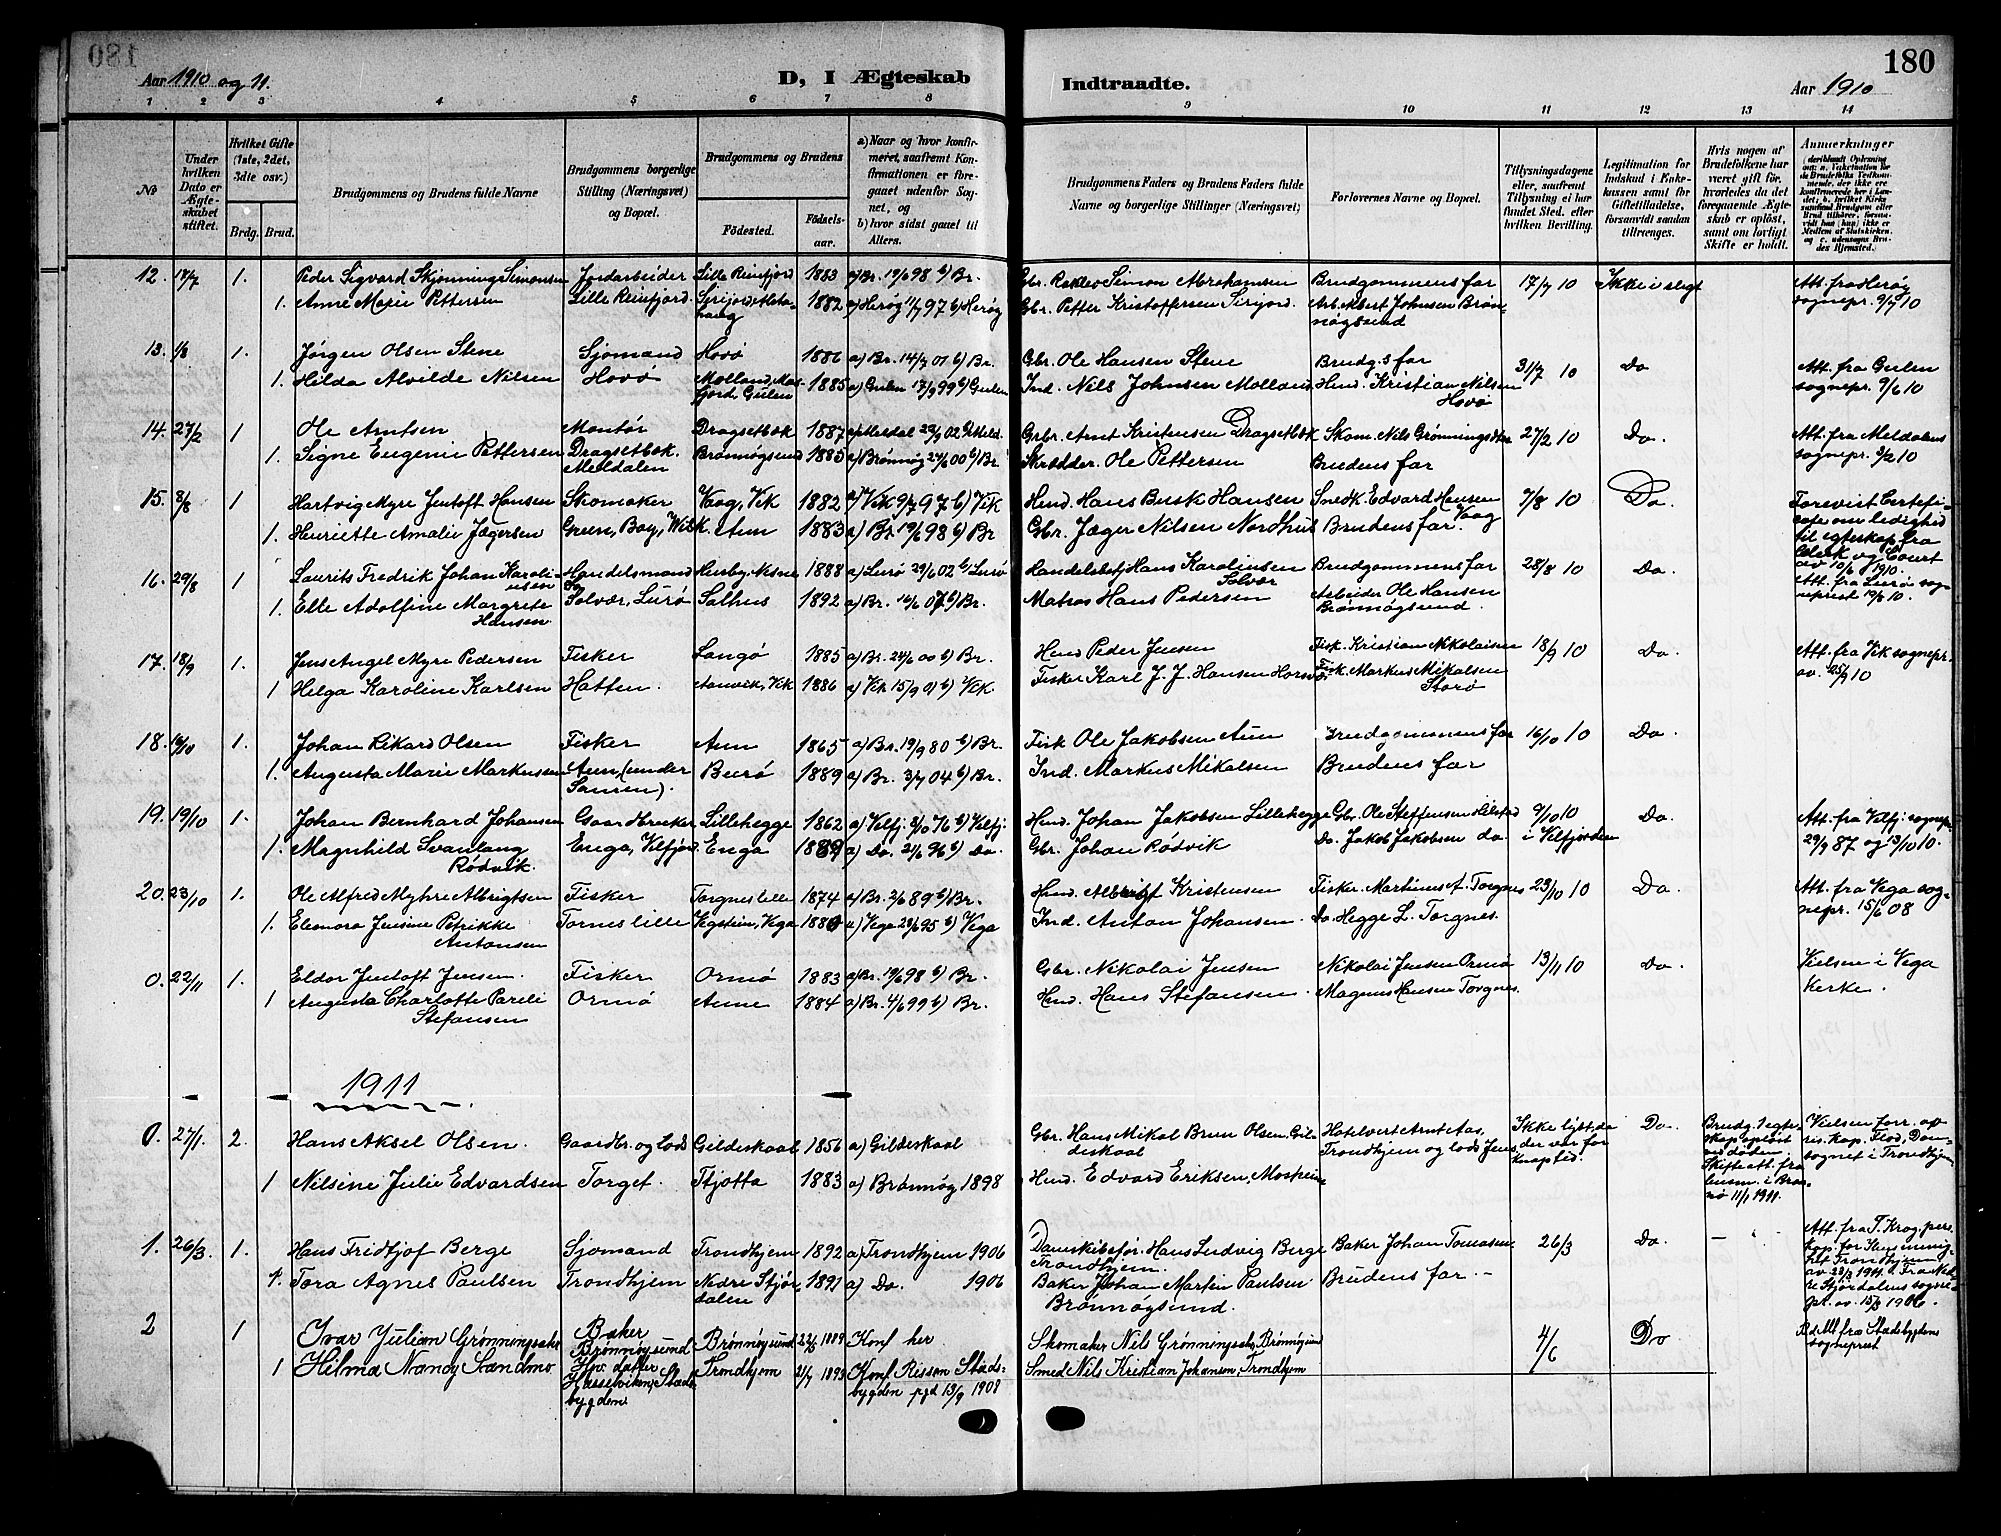 180
Aar 1910 og 11.
D, I Ægteskab
Indtraadte.
Aar 1910
180
1 2 3 4 5 6 7 8 9 10 11 12 13 14
No
Under hvilken Dato er Ægteskabet stiftet.
Hvilket Gifte (1ste, 2det, 3die osv.)
Brdg. Brud.
Brudgommens og Brudens fulde Navne
Brudgommens borgerlige Stilling (Næringsvei) og Bopæl.
Brudgommens og Brudens
Fødested.
Fødselsaar.
a) Naar og hvor konfirmeret, saafremt Konfirmationen er foregaaet udenfor Sognet, og
b) hvor sidst gaaet til Alters.
Brudgommens Faders og Brudens Faders fulde Navne og borgerlige Stillinger (Næringsvei)
Forlovernes Navne og Bopæl.
Tillysningsdagene eller, saafremt Tillysning ei har fundet Sted, efter hvilken Bevilling.
Legitimation for Indskud i Enkekassen samt for Giftetilladelse, forsaavidt saadan tiltrænges.
Hvis nogen af Brudefolkene har været gift før, hvorledes da det foregaaende Ægteskab er opløst, samt om lovligt Skifte er holdt.
Anmærkninger
12. 17/7 1. Peder Sigvard Skjønning Simonsen Jordarbeider Lille Reinfjord 1883 a) Br. 19/6 98 b) Br. Gbr. Simon Abrahamsen Brudgommens far 17/7 10 Ikke i slegt Att. fra Herøy
1. Anne Marie Pettersen Lille Reinfjord 1882 a) Herøy 11/7 97 b) Herøy Gbr. Petter Kristoffersen Arb. Albert Johnsen Brønnøysund sognepr. 9/7 10
13. 1/8 1. Jørgen Olsen Stene Sjømand Hovø 1886 a) Br. 14/7 01 b) Br. Gbr. Ole Hansen Stene Brudg.s far 31/7 10 Do Att. fra Gulen
1. Hilda Alvilde Nilsen Hovø Molland, Gulen 1885 a) Gulen 17/9 99 b) Gulen Ind. Nils Johnsen Molland Hmd. Kristian Nilsen Hovø sognepr. 9/6 10
14. 27/2 1 Ole Arntsen Montør Dragsetbøk 1887 a) Meldal 02 Grbr. Arnt Kristensen Dragsetbøk Skom. Nils Grønningsæter 27/2 10 Do. Att. fra Meldalens
1. Signe Eugenie Pettersen Dragsetbøk. Meldalen Brønnøysund 1885 a) Brønnøy 24/6 00 b) Br Skrædder. Ole Pettersen Brudens far sognepr. 3/2 10
15. 8/8 1 Hartvig Myre Jentoft Hansen Skomaker Vaag, Vik 1882 a) Vik 9/7 97 b) Vik Hmd. Hans Busk Hansen Snedk. Edvard Hansen Vaag 7/8 10 Do. Forevist Certeficate om ledighed til egteskap fra Clerk og Court av 10/6 1910.
1. Henriette Amalie Jægersen Green, Bay, Wisk. Aun 1883 a) Br 19/6 98 b) Br Gbr. Jæger Nilsen Nordhus Brudens far.
16. 29/8 1 Laurits Fredrik Johan Karoliussen Handelsmand Husby, Nesne 1888 a) Lurø 29/6 02 b) Lurø Handelsbetj Hans Karolinsen Solvær Brudgommens far 28/8 10 Do. Att. fra Lurø sogneprest 19/8 10.
1. Elle Adolfine Margrete Hansen Solvær, Lurø Salhus 1892 a) Br. 16/6 07 b) Br. Matros Hans Pedersen Arbeider Ole Hansen Brønnøysund.
17. 18/9 1. Jens Angel Myre Pedersen Fisker Langø 1885 a) Br. 24/6 00 b) Br. Hmd Peder Jensen Fisk. Kristian Nikolaisen 18/9 10 Do. Att. fra Vik sognepr.
1 Helga Karoline Karlsen Hatten. Aanvik, Vik 1886 a) Vik 15/9 01 b) Vik. Fisker Karl J. J. Hansen Horsvær Fisk. Markus Mikalsen Storø av. 25/9 10
18. 16/10 1. Johan Rikard Olsen Fisker Aun 1865 a) Br. 19/9 80 b) Br. Fisk Ole Jakobsen Aun Brudgommens far 16/10 10 Do.
1. Augusta Marie Markussen Aun, (under Sauren). Burø 1889 a) Br. 3/7 04 b) Br. Ind. Markus Mikalsen Brudens far
19. 19/10 1. Johan Bernhard Johansen Gaardbruker Lillehegge 1862 a) Velfj. 8/10 76 b) Velfj. Hmd. Johan Jakobsen Lillehegge Gbr. Ole Steffensen Hilstad 9/10 10 Do. Att. fra Velfj. sognepr.
1. Magnhild Svanlaug Rødvik. Enga, Velfjor. Enga 1889 a) Do. 21/6 96 b) Do. Gbr. Johan Rødvik Do. Jakob Jakobsen do i Velfjorden 29/9 87 og 13/10 10.
20. 23/10 1. Ole Alfred Myhre Albrigtsen Fisker Torgneslille 1874 a) Br. 2/6 89 b) Br. Hmd. Albrigt Kristensen Fisker. Martinus A. Torgnes 23/10 10 Do. Att. fra Vega sognepr. 15/6 08
1. Eleonora Jensine Petrikke Antonsen Torneslille Vegstein, Vega 1880 a) Vega 95 b) Vega Ind. Anton Johansen. Do. Hegge L. Torgnes.
0. 22/11 1. Eldor Jentoft Jensen. Fisker Ormø 1883 a) Br. 19/6 98 b) Br. Gbr. Nikolai Jensen Nikolai Jensen Ormø 13/11 10 Do. Vielsen i Vega Kerke.
1 Augusta Charlotte Pareli Stefansen Ormø Aune 1884 a) Br. 4/6 99 b) Br. Hmd. Hans Stefansen. Magnus Hansen Torgnes.
1911
0. 27/1. 2. Hans Aksel Olsen. Gaardbr. og Lods Gildeskaal 1856 a) Gildeskaal Gbr. Hans Mikal Brun Olsen, Gildeskaal Hotelvert Arnt Aas, Trondhjem og lods Jens Ikke lyst, da der var for knap tid. Do. Brudg. 1 egteskap opløst ved døden. Skifteatt. fra lensm. i Brønnø 11/1 1911. Vielsen forr. av res. kap. Flod, Domsognet i Trondhjem.
1 Nilsine Julie Edvardsen Torget. Tjøtta 1883 a) Brønnøy 1898 Hmd. Edvard Eriksen,
1. 26/3. 1. Hans Fridtjof Berge Sjømand Trondhjem 1892 a) Trondhjem 1906 Dampskibsfør. Hans Ludvig Berge Trondhjem. Baker Johan Tomasen 26/3 Do. – Att. fra T. Krog, pers. kap. for Vor Trondhjem
1. Tora Agnes Paulsen Trondhjem Nedre Stjørdalen 1891 a) Do. 1906 Baker Johan Martin Paulsen Brønnøysund. Brudens far. – Stjørdalens sognepr. av. 15/3 1906.
2 1 Ivar Julian Grønningsæter Baker Brønnøysund Brønnøysund 1889 Konf her Skomaker Nils Grønningsæter, Brønnøysund 4/6 Do Att fra Stadsbygdens sogneprest
1 Hilma Nancy Sandmo Hasselviken, Stadsbygden Trondhjem 1893 Konf Rissen Stadsbygden pgd 13/9 1908 Smed Nils Kristian Johansen, Trondhjem